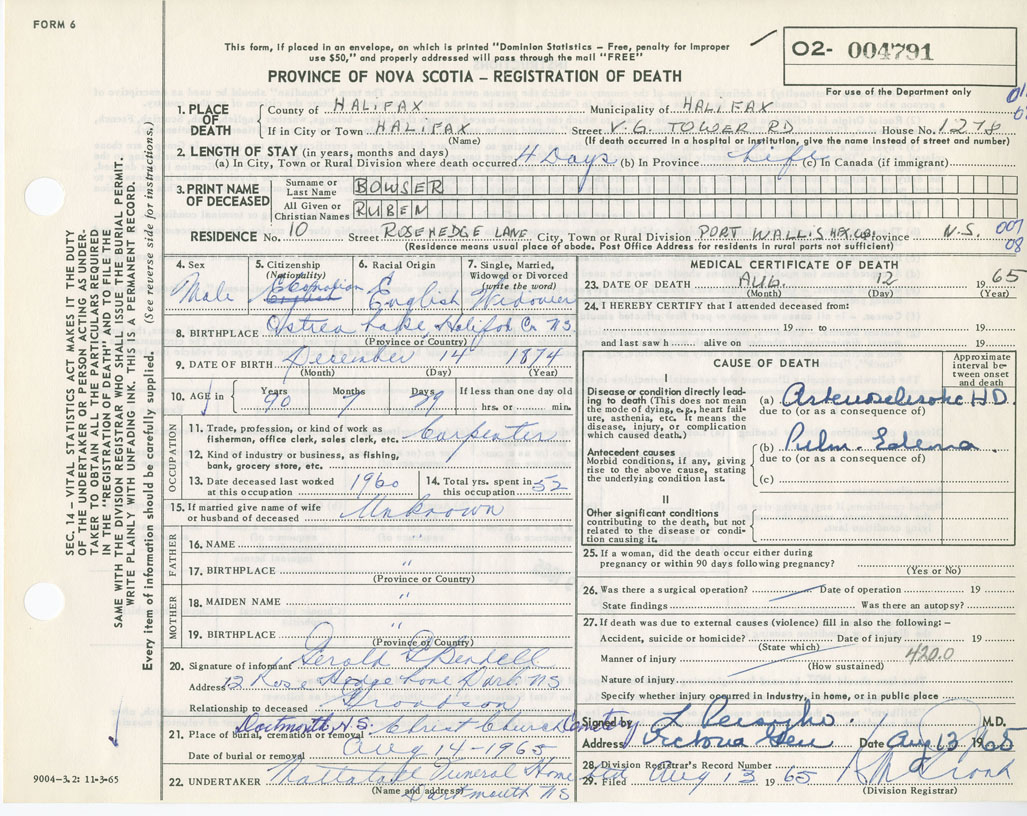 FORM 6
This form, if placed in an envelope, on which is printed "Dominion Statistics – Free, penalty for improper
use $50," and properly addressed will pass through the mail "FREE"
O2- 004791
For use of the Department only
PROVINCE OF NOVA SCOTIA – REGISTRATION OF DEATH
1. PLACE OF DEATH
County of HALIFAX Municipality of HALIFAX
If in City or Town HALIFAX Street V.G. TOWER RD House No. 1278
(Name) (If death occurred in a hospital or institution, give the name instead of street and number)
2. LENGTH OF STAY (in years, months and days)
(a) In City, Town or Rural Division where death occurred 4 Days (b) In Province Life (c) In Canada (if immigrant)
3. PRINT NAME OF DECEASED
Surname or Last Name BOWSER
All Given or Christian Names RUBEN
RESIDENCE No. 10 Street ROSEHEDGE LANE City, Town or Rural Division PORT WALLIS HFX. CO. Province N.S.
(Residence means usual place of abode. Post Office Address for residents in rural parts not sufficient)
007
08
SEC. 14 – VITAL STATISTICS ACT MAKES IT THE DUTY
OF THE UNDERTAKER OR PERSON ACTING AS UNDER-
TAKER TO OBTAIN ALL THE PARTICULARS REQUIRED
IN THE "REGISTRATION OF DEATH" AND TO FILE THE
SAME WITH THE DIVISION REGISTRAR WHO SHALL ISSUE THE BURIAL PERMIT.
WRITE PLAINLY WITH UNFADING INK. THIS IS A PERMANENT RECORD.
Every item of information should be carefully supplied. (See reverse side for instructions.)
4. Sex
Male
5. Citizenship
(Nationality)
Canadian
English
6. Racial Origin
English
7. Single, Married,
Widowed or Divorced
(write the word)
Widower
8. BIRTHPLACE Ostrea Lake, Halifax Co NS
(Province or Country)
9. DATE OF BIRTH December 14 1874
(Month) (Day) (Year)
10. AGE in Years 90 Months 7 Days 29 If less than one day old
hrs. or min.
OCCUPATION
11. Trade, profession, or kind of work as
fisherman, office clerk, sales clerk, etc. Carpenter
12. Kind of industry or business, as fishing,
bank, grocery store, etc.
13. Date deceased last worked
at this occupation 1960
14. Total yrs. spent in
this occupation 52
15. If married give name of wife
or husband of deceased Unknown
FATHER
16. NAME "
17. BIRTHPLACE "
(Province or Country)
MOTHER
18. MAIDEN NAME "
19. BIRTHPLACE "
(Province or Country)
20. Signature of informant Gerald
Address 12 Rose Hedge Lane Dart NS
Relationship to deceased Grandson
21. Place of burial, cremation or removal Dartmouth, N.S. Christ Church Cemetery
Date of burial or removal Aug 14-1965
22. UNDERTAKER Mattatall Funeral Home
(Name and address) Dartmouth NS
9004–3.2: 11-3-65
MEDICAL CERTIFICATE OF DEATH
23. DATE OF DEATH AUG. 12 1965
(Month) (Day) (Year)
24. I HEREBY CERTIFY that I attended deceased from:
19 to 19
and last saw h alive on 19
CAUSE OF DEATH
Approximate
interval be-
tween onset
and death
I
Disease or condition directly lead-
ing to death (This does not mean
the mode of dying, e.g., heart fail-
ure, asthenia, etc. It means the
disease, injury, or complication
which caused death.)
(a) Arteriosclerotic H.D.
due to (or as a consequence of)
Antecedent causes
Morbid conditions, if any, giving
rise to the above cause, stating
the underlying condition last.
(b) Pulm. Edema
due to (or as a consequence of)
(c)
II
Other significant conditions
contributing to the death, but not
related to the disease or condi-
tion causing it.
25. If a woman, did the death occur either during
pregnancy or within 90 days following pregnancy?
(Yes or No)
26. Was there a surgical operation? Date of operation 19
State findings Was there an autopsy?
27. If death was due to external causes (violence) fill in also the following: –
Accident, suicide or homicide? Date of injury 19
(State which)
Manner of injury 420.0
(How sustained)
Nature of injury
Specify whether injury occurred in industry, in home, or in public place
Signed by M.D.
Address Victoria Gen Date Aug 13 1965
28. Division Registrar's Record Number
29. Filed Aug 13 1965
(Division Registrar)